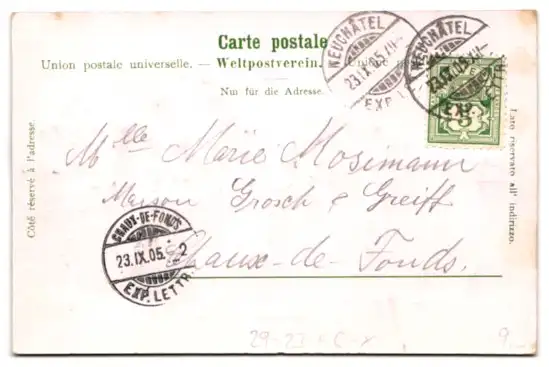 Carte postale
Union postale universelle. — Weltpostverein. — Unione postale
Nur für die Adresse.
NEUCHÂTEL
23.IX.05.VII—
EXP. L
NEUCHÂTEL
23.IX.05.VII—
EXP. LETTR
Côté réservé à l'adresse.
Lato riservato all' indirizzo.
Mlle Marie Mosimann
Maison Grosch & Greiff
Chaux-de-Fonds.
CHAUX-DE-FONDS
23.IX.05.–2
EXP. LETTR.
9.–